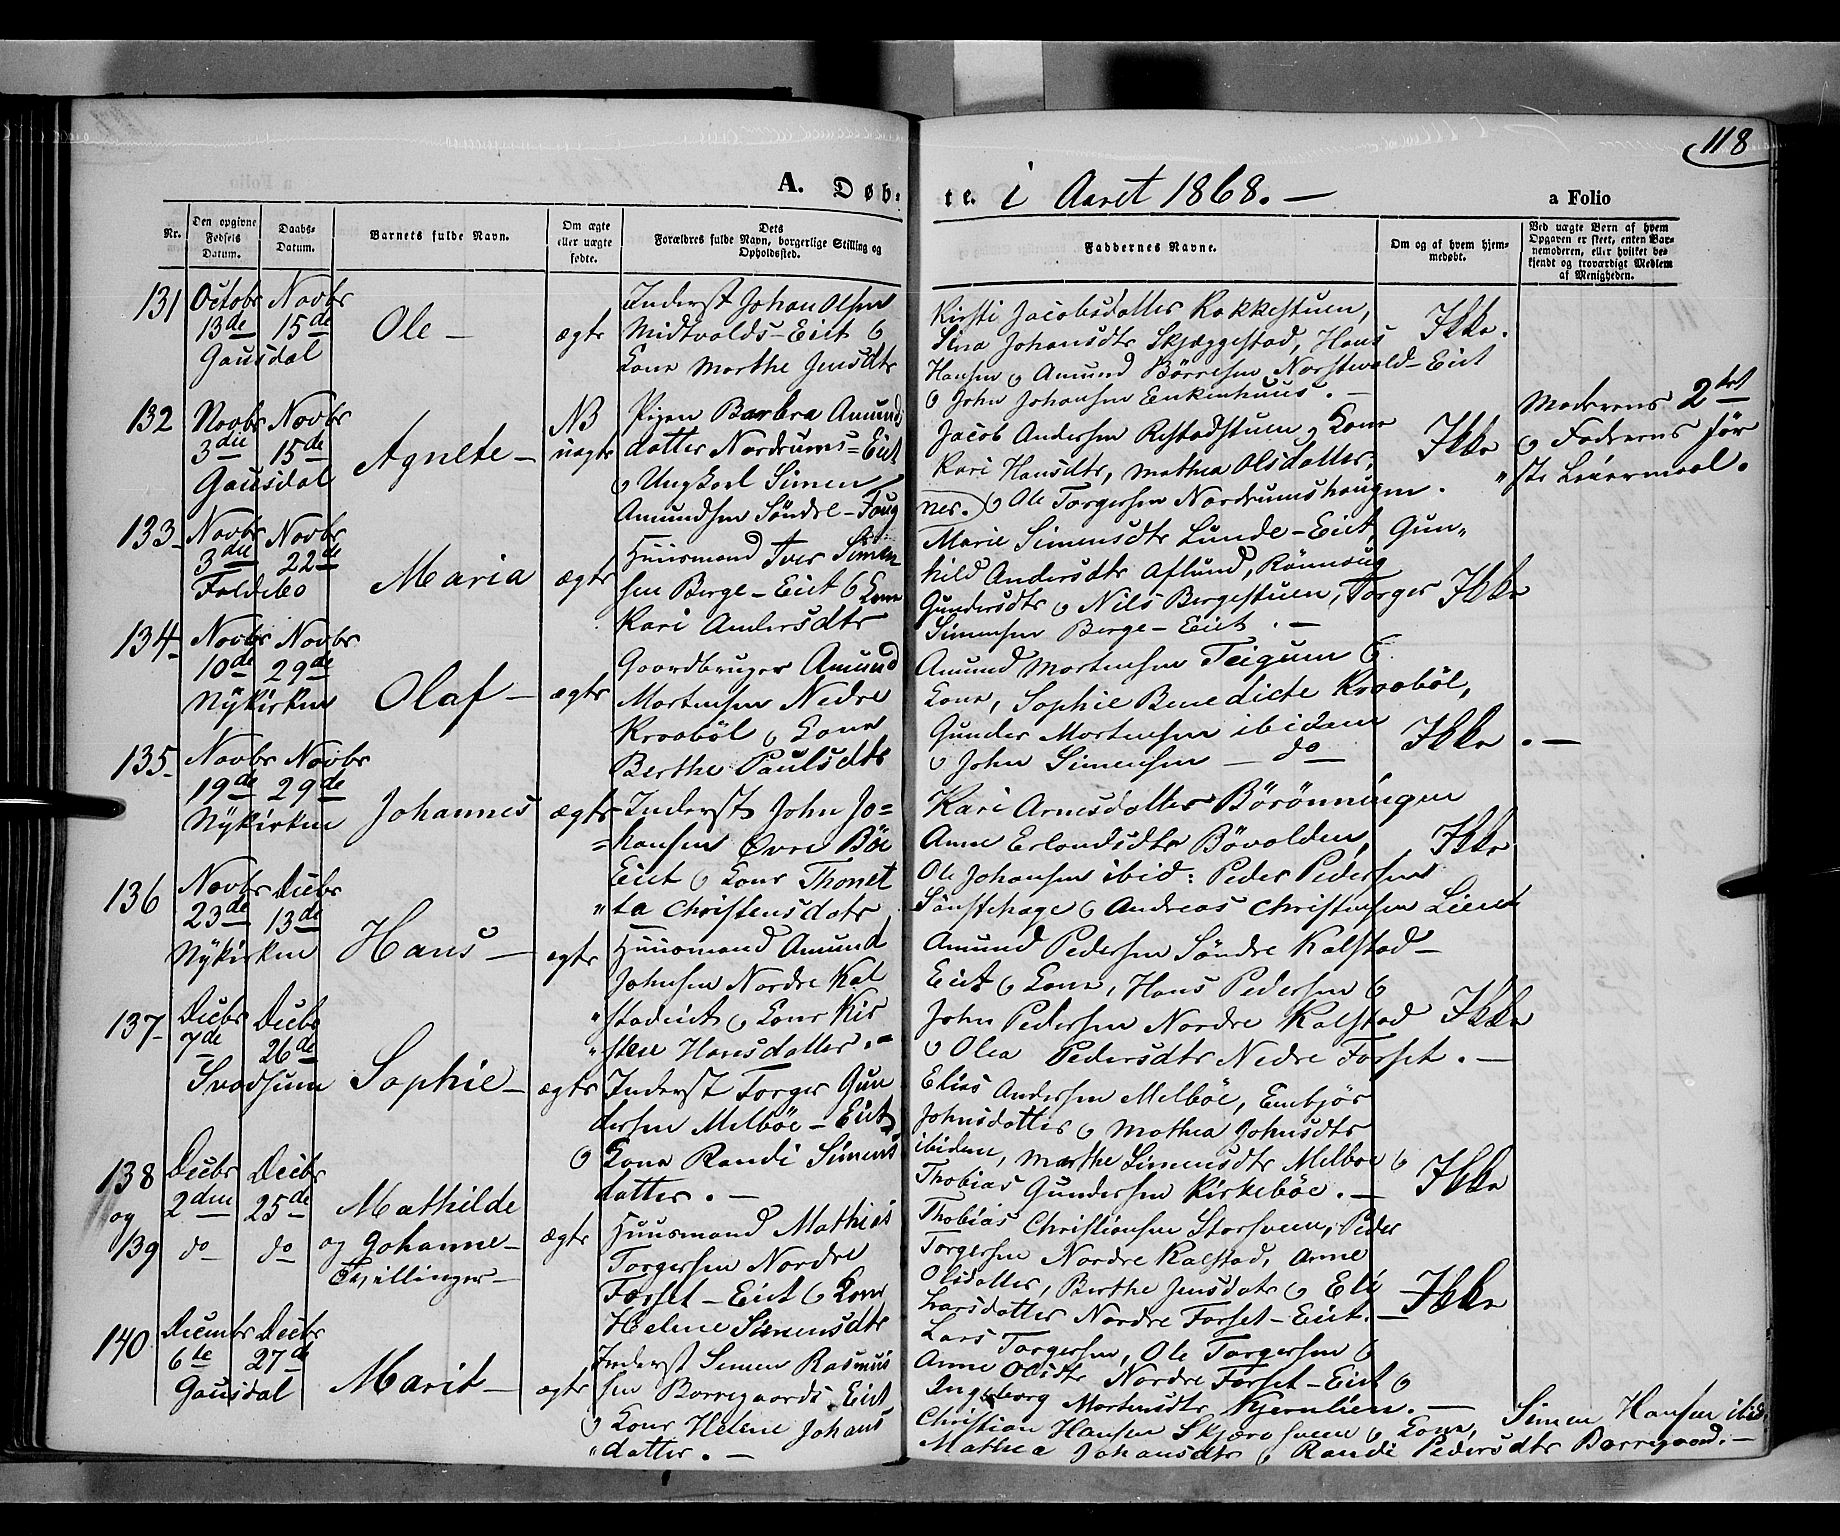 118
A. Døb-
te. i Aaret 1868. —
a Folio
Nr.
Den opgivne Fødsels Datum.
Daabs-Datum.
Barnets fulde Navn.
Om ægte eller uægte fødte.
Dets Forældres fulde Navn, borgerlige Stilling og Opholdssted.
Faddernes Navne.
Om og af hvem hjemmedøbt.
Ved uægte Børn af hvem Opgaven er skeet, enten Barnemoderen, eller hvilket bekjendt og troværdigt Medlem af Menigheden.
131 Octobr 13de Novbr 15de
Gausdal
Ole —
ægte
Inderst Johan Olsen
Midtvolds-Eiet &
Kone Marthe Jensdtr
Kirsti Jacobsdatter Rokkestuen,
Sina Johansdtr Skjæggestad, Hans
Hansen & Amund Børresen Norstvold-Eiet
& John Johansen Enkenhuus. —
Ikke.
132 Novbr 3die Novbr 15de
Gausdal
Agnete —
NB
uægte
Pigen Barbra Amunds
datter Nordrums-Eiet
& Ungkarl Simen
Amundsen Søndre-Faug
Jacob Andersen Kone
Kari Hansdtr, Mathea Olsdatter,
& Ole Torgersen Nordrumshaugen.
Ikke
Moderens 2det
& Faderens før
ste Leiermaal.
133 Novbr 3die Novbr 22de
Foldebo
Maria
ægte
Huusmand Iver Simen
sen Berge-Eiet & Kone
Kari Andersdtr
Marie Simensdtr Lunde-Eiet, Gun„
hild Andersdtr Aflund, Rønnoug
Gundersdtr & Nils Bergestuen, Torger
Simensen Berge-Eiet. —
Ikke
134 Novbr 10de Novbr 29de
Nykirken
Olaf —
ægte
Gaardbruger Amund
Mortensen Nedre
Kraabøl & Kone
Berthe Paulsdtr
Amund Mortensen Teigum &
Kone, Sophie Benedicte Kraabøl,
Gunder Mortensen ibidem
& John Simensen — do
Ikke . —
135 Novbr 19de Novbr 29de
Nykirken
Johannes
ægte
Inderst John Jo=
=hansen Øvre Bøe
Eiet & Kone Thonet
„ta Christensdatr
Kari Arnesdatter Børønningen
Anne Erlandsdtr Bøvolden,
Ole Johansen ibid: Peder Pedersen
& Andreas Christensen Lieen
Ikke
136 Novbr 23de Decbr 13de
Nykirken
Hans —
ægte
Huusmand Amund
Johnsen Nordre Kal
„stadeiet & Kone Kir
„sten Hansdatter. —
Amund Pedersen Søndre Kalstad —
Eiet & Kone, Hans Pedersen &
John Pedersen Nordre Kalstad
& Olea Pedersdtr Nedre Forset. —
Ikke
137 Decbr 7de Decbr 26de
Svadsum
Sophie —
ægte
Inderst Torger Gun
dersen Melbøe-Eiet
& Kone Randi Simens
datter. —
Elias Andersen Melbøe, Embjør
Johnsdatter & Mathea Johnsdtr
ibidem, Marthe Simensdtr Melbøe &
Thobias Gundersen Kirkebøe. —
Ikke
138 Decbr 2den Decbr 25de
og
139 do do
Mathilde
og Johanne —
Tvillinger —
ægte
Huusmand Mathias
Torgersen Nordre
Forset-Eiet & Kone
Helene Simensdtr
Thobias Christiansen Storsveen, Peder
Torgersen Nordre Kalstad, Anne
Olsdatter, Berthe Jensdatr & Eli
Larsdatter Nordre Forset-Eiet. —
Lars Torgersen, Ole Torgersen &
Anne Olsdtr Nordre Forset-Eiet &
Ingeborg Mortensdtr Kjernlien. —
Ikke
140 Decembr 6te Decbr 27de
Gausdal
Marit —
ægte
Inderst Simen Rasmus
sen Borregaards Eiet
& Kone Helene Johans
„datter. —
Christian Hansen & Kone, Simen Hansen ibid.
Mathea Johansdtr & Randi Pedersdtr Borregaard. —